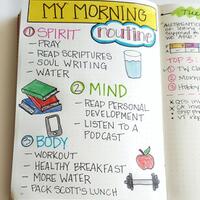 MY MORNING
routine
① SPIRIT
- PRAY
- READ SCRIPTURES
- SOUL WRITING
- WATER
② MIND
- READ PERSONAL
DEVELOPMENT
- LISTEN TO A
PODCAST
③ BODY
- WORKOUT
- HEALTHY BREAKFAST
- MORE WATER
- PACK SCOTT'S LUNCH
THE
TOP 3